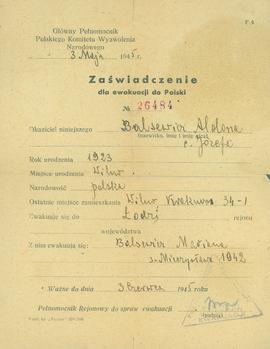 Główny Pełnomocnik
Polskiego Komitetu Wyzwolenia
Narodowego
3 Maja 1945 r.
Zaświadczenie
dla ewakuacji do Polski
№ 26484
Okaziciel niniejszego Balsewicz Aldona
(nazwisko, imię i imię ojca)
c. Józefa
Rok urodzenia 1923
Miejsce urodzenia Wilno
Narodowość polska
Ostatnie miejsce zamieszkania Wilno 34-1
Ewakuuje się do Łodzi rejonu
województwa
Z nim ewakuują się: Balsewicz
s. Mieczysława 1942
Ważne do dnia 3 Czerwca 1945 roku
Pełnomocnik Rejonowy do spraw ewakuacji
(podpis)